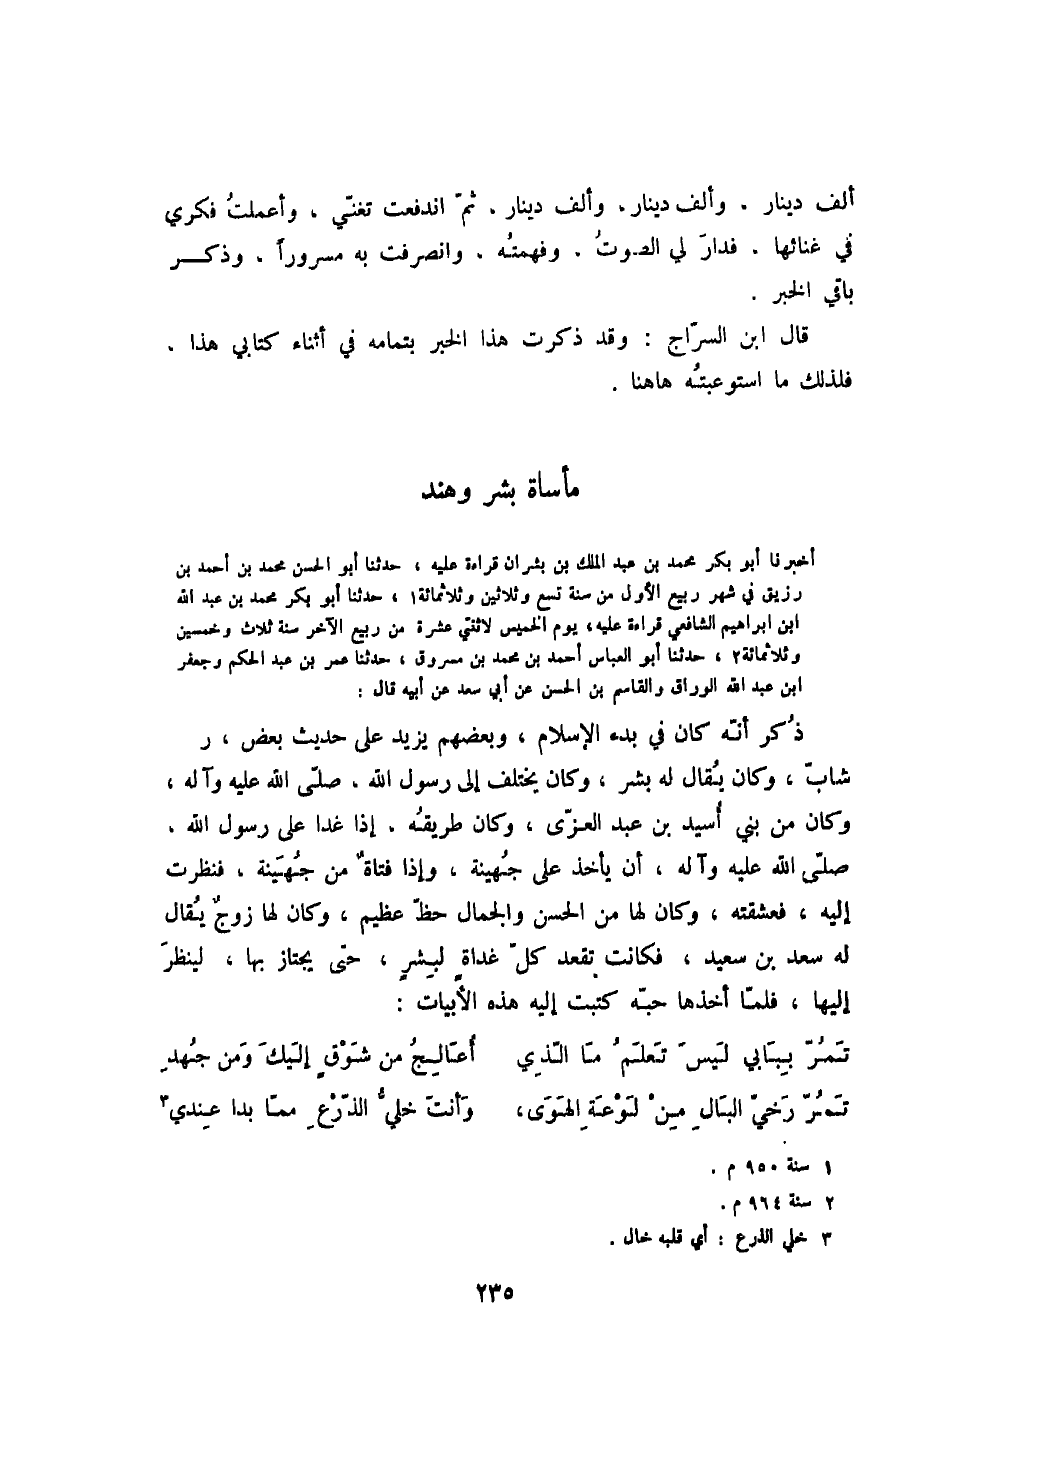 ألف دينار . وألف دينار. وألف دينار . ثمّ اندفعت تغنّي ، وأعملتُ فكري
في غنائها . فدارَ لي الصوتُ . وفهمتُه . وانصرفت به مسروراً . وذكـــر
باقي الخبر .
قال ابن السرّاج : وقد ذكرت هذا الخبر بتمامه في أثناء كتابي هذا .
فلذلك ما استوعبتُه هاهنا .
مأساة بشر وهند
أخبرنا أبو بكر محمد بن عبد الملك بن بشران قراءة عليه ، حدثنا أبو الحسن محمد بن أحمد بن
رزيق في شهر ربيع الأول من سنة تسع وثلاثين وثلاثمائة١ ، حدثنا أبو بكر محمد بن عبد الله
ابن ابراهيم الشافعي قراءة عليه، يوم الخميس لاثنتي عشرة من ربيع الآخر سنة ثلاث وخمسين
وثلاثمائة٢ ، حدثنا أبو العباس أحمد بن محمد بن مسروق ، حدثنا عمر بن عبد الحكم وجعفر
ابن عبد الله الوراق والقاسم بن الحسن عن أبي سعد عن أبيه قال :
ذُكر أنّه كان في بدء الإسلام ، وبعضهم يزيد على حديث بعض ، ر
شابّ ، وكان يُقال له بشر ، وكان يختلف إلى رسول الله . صلّى الله عليه وآله ،
وكان من بني أُسيد بن عبد العزّى ، وكان طريقُه . إذا غدا على رسول الله .
صلّى الله عليه وآله ، أن يأخذ على جُهينة ، وإذا فتاةٌ من جُهَينة ، فنظرت
إليه ، فعشقته ، وكان لها من الحسن والجمال حظّ عظيم ، وكان لها زوجٌ يُقال
له سعد بن سعيد ، فكانت تقعد كلّ غداةٍ لبِشرٍ ، حتّى يجتاز بها ، لينظرَ
إليها ، فلمّا أخذها حبّه كتبت إليه هذه الأبيات :
تَمُرّ بِبَابي لَيسَ تَعلَمُ مَا الّذِي أُعَالِجُ من شَوْقٍ إلَيكَ وَمن جُهدِ
تَمُرّ رَخيّ البَالِ مِنْ لَوْعَةِ الهَوَى، وَأنتَ خليُّ الذّرْعِ ممّا بدا عِندي٣
١ سنة ٩٥٠ م .
٢ سنة ٩٦٤ م .
٣ خلي الذرع : أي قلبه خال .
٢٣٥